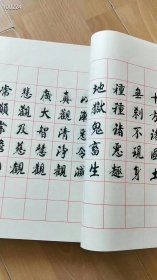 100224
方諸國土
無刹不現身
種種諸惡趣
地獄鬼畜生
悉令滅
真觀清淨觀
廣大智慧觀
悲觀及慈觀
常願常瞻